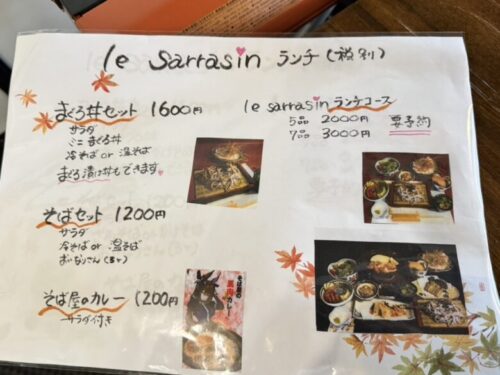 le sarrasin ランチ(税別)
まぐろ丼セット 1600円
サラダ
ミニまぐろ丼
冷そば or 温そば
まぐろ漬け丼もできます
そばセット 1200円
サラダ
冷そば or 温そば
おいなりさん(5ヶ)
そば屋のカレー 1200円
サラダ付き
le sarrasin ランチコース
5品 2000円 要予約
7品 3000円